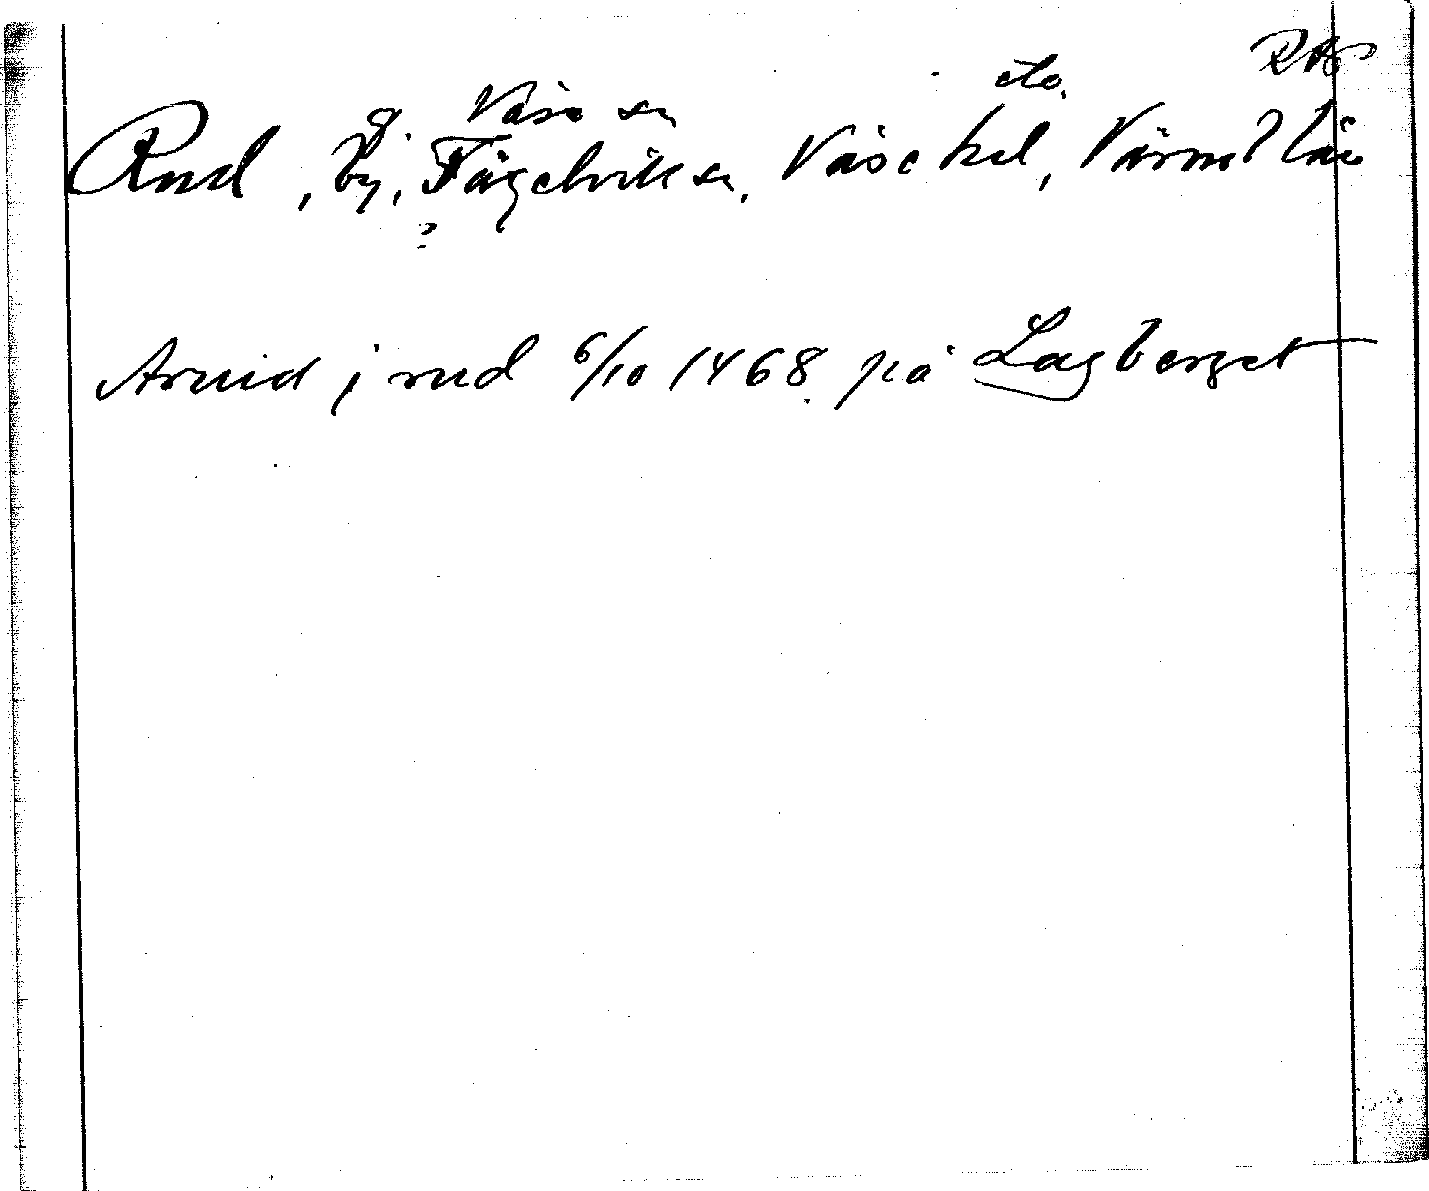 Väse sn
Rud, by, Fågelvik sn, Väse hd, Värml län
?
Arvid i rud 6/10 1468 på Lagberget